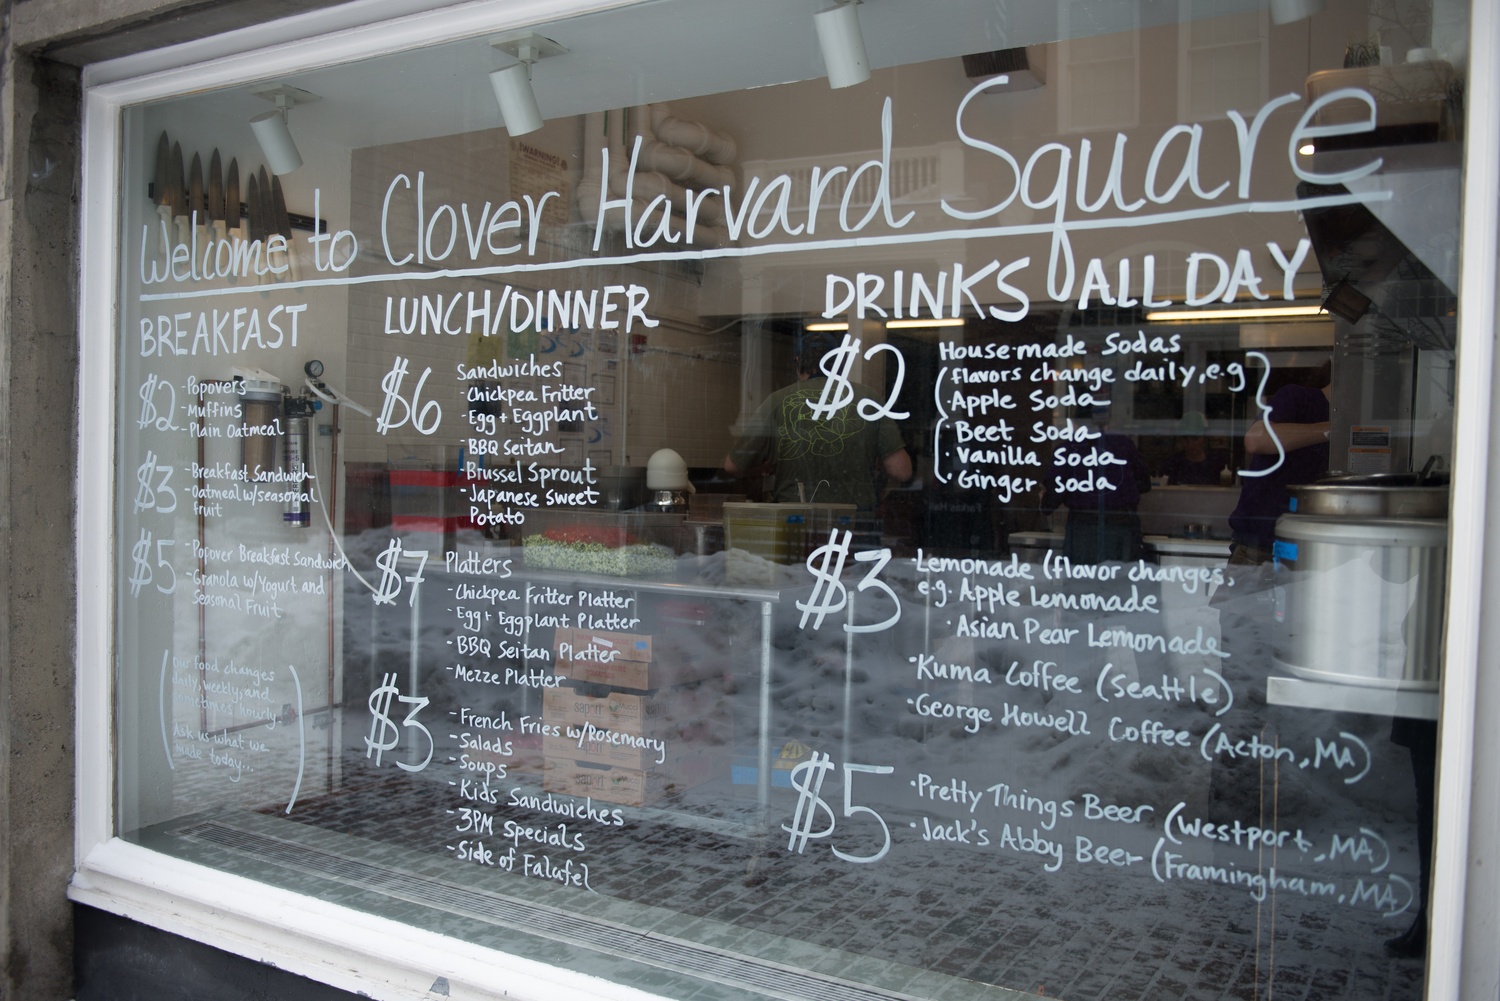 Welcome to Clover Harvard Square
BREAKFAST
$2
-Popovers
-Muffins
-Plain Oatmeal
$3
-Breakfast Sandwich
-Oatmeal w/seasonal
fruit
$5
-Popover Breakfast Sandwich
-Granola w/Yogurt and
Seasonal Fruit
(our food changes
daily, weekly, and
sometimes hourly.
Ask us what we
made today...)
LUNCH/DINNER
$6
Sandwiches
-Chickpea Fritter
-Egg + Eggplant
-BBQ Seitan
-Brussel Sprout
-Japanese Sweet
Potato
$7
Platters
-Chickpea Fritter Platter
-Egg + Eggplant Platter
-BBQ Seitan Platter
-Mezze Platter
$3
-French Fries w/Rosemary
-Salads
-Soups
-Kids Sandwiches
-3PM Specials
-Side of Falafel
DRINKS ALL DAY
$2
House-made Sodas
(flavors change daily, e.g
·Apple Soda
·Beet Soda
·Vanilla Soda
·Ginger Soda
$3
·Lemonade (flavor changes,
e.g. Apple Lemonade
·Asian Pear Lemonade
·Kuma Coffee (Seattle)
·George Howell Coffee (Acton, MA)
$5
·Pretty Things Beer (Westport, MA)
·Jack's Abby Beer (Framingham, MA)
WARNING!